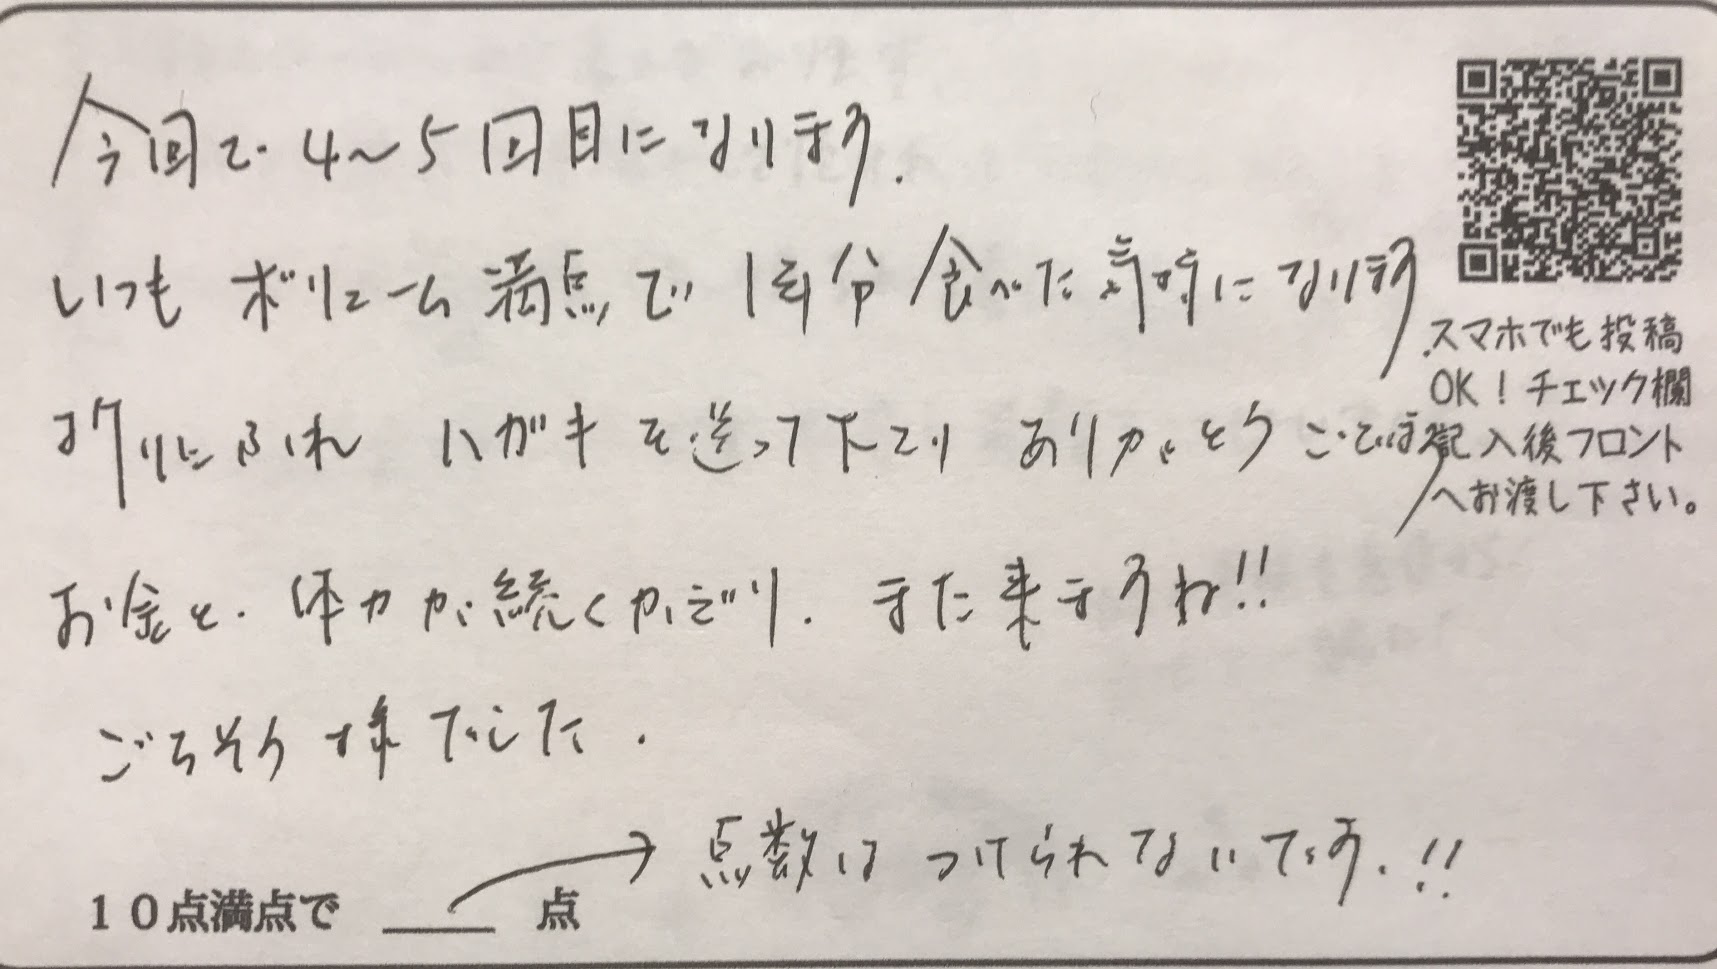 今回で4～5回目になります.
いつもボリューム満点で1年分食べた気持になります
スマホでも投稿
OK！チェック欄
記入後フロント
へお渡し下さい。
折りにふれ ハガキを送って下さり ありがとうございます
お金と.体力が続くかぎり. また来ますね!!
ごちそう様でした.
点数は つけられないです.!!
１０点満点で ＿＿ 点